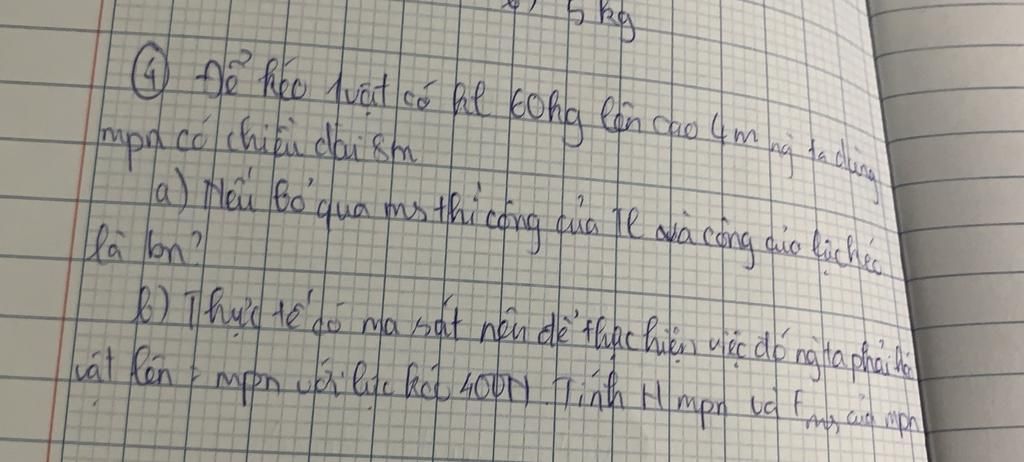 5 kg
④ Để kéo 1 vật có kl 60kg lên cao 4m ng ta dùng
mpn có chiều dài 8m
a) Nếu bỏ qua ms thì công của TL và công của lực kéo
là bn?
b) Thực tế có ma sát nên để thực hiện việc đó ng ta phải kéo
vật lên = mpn với lực kéo 400N. Tính H mpn và Fms của mpn